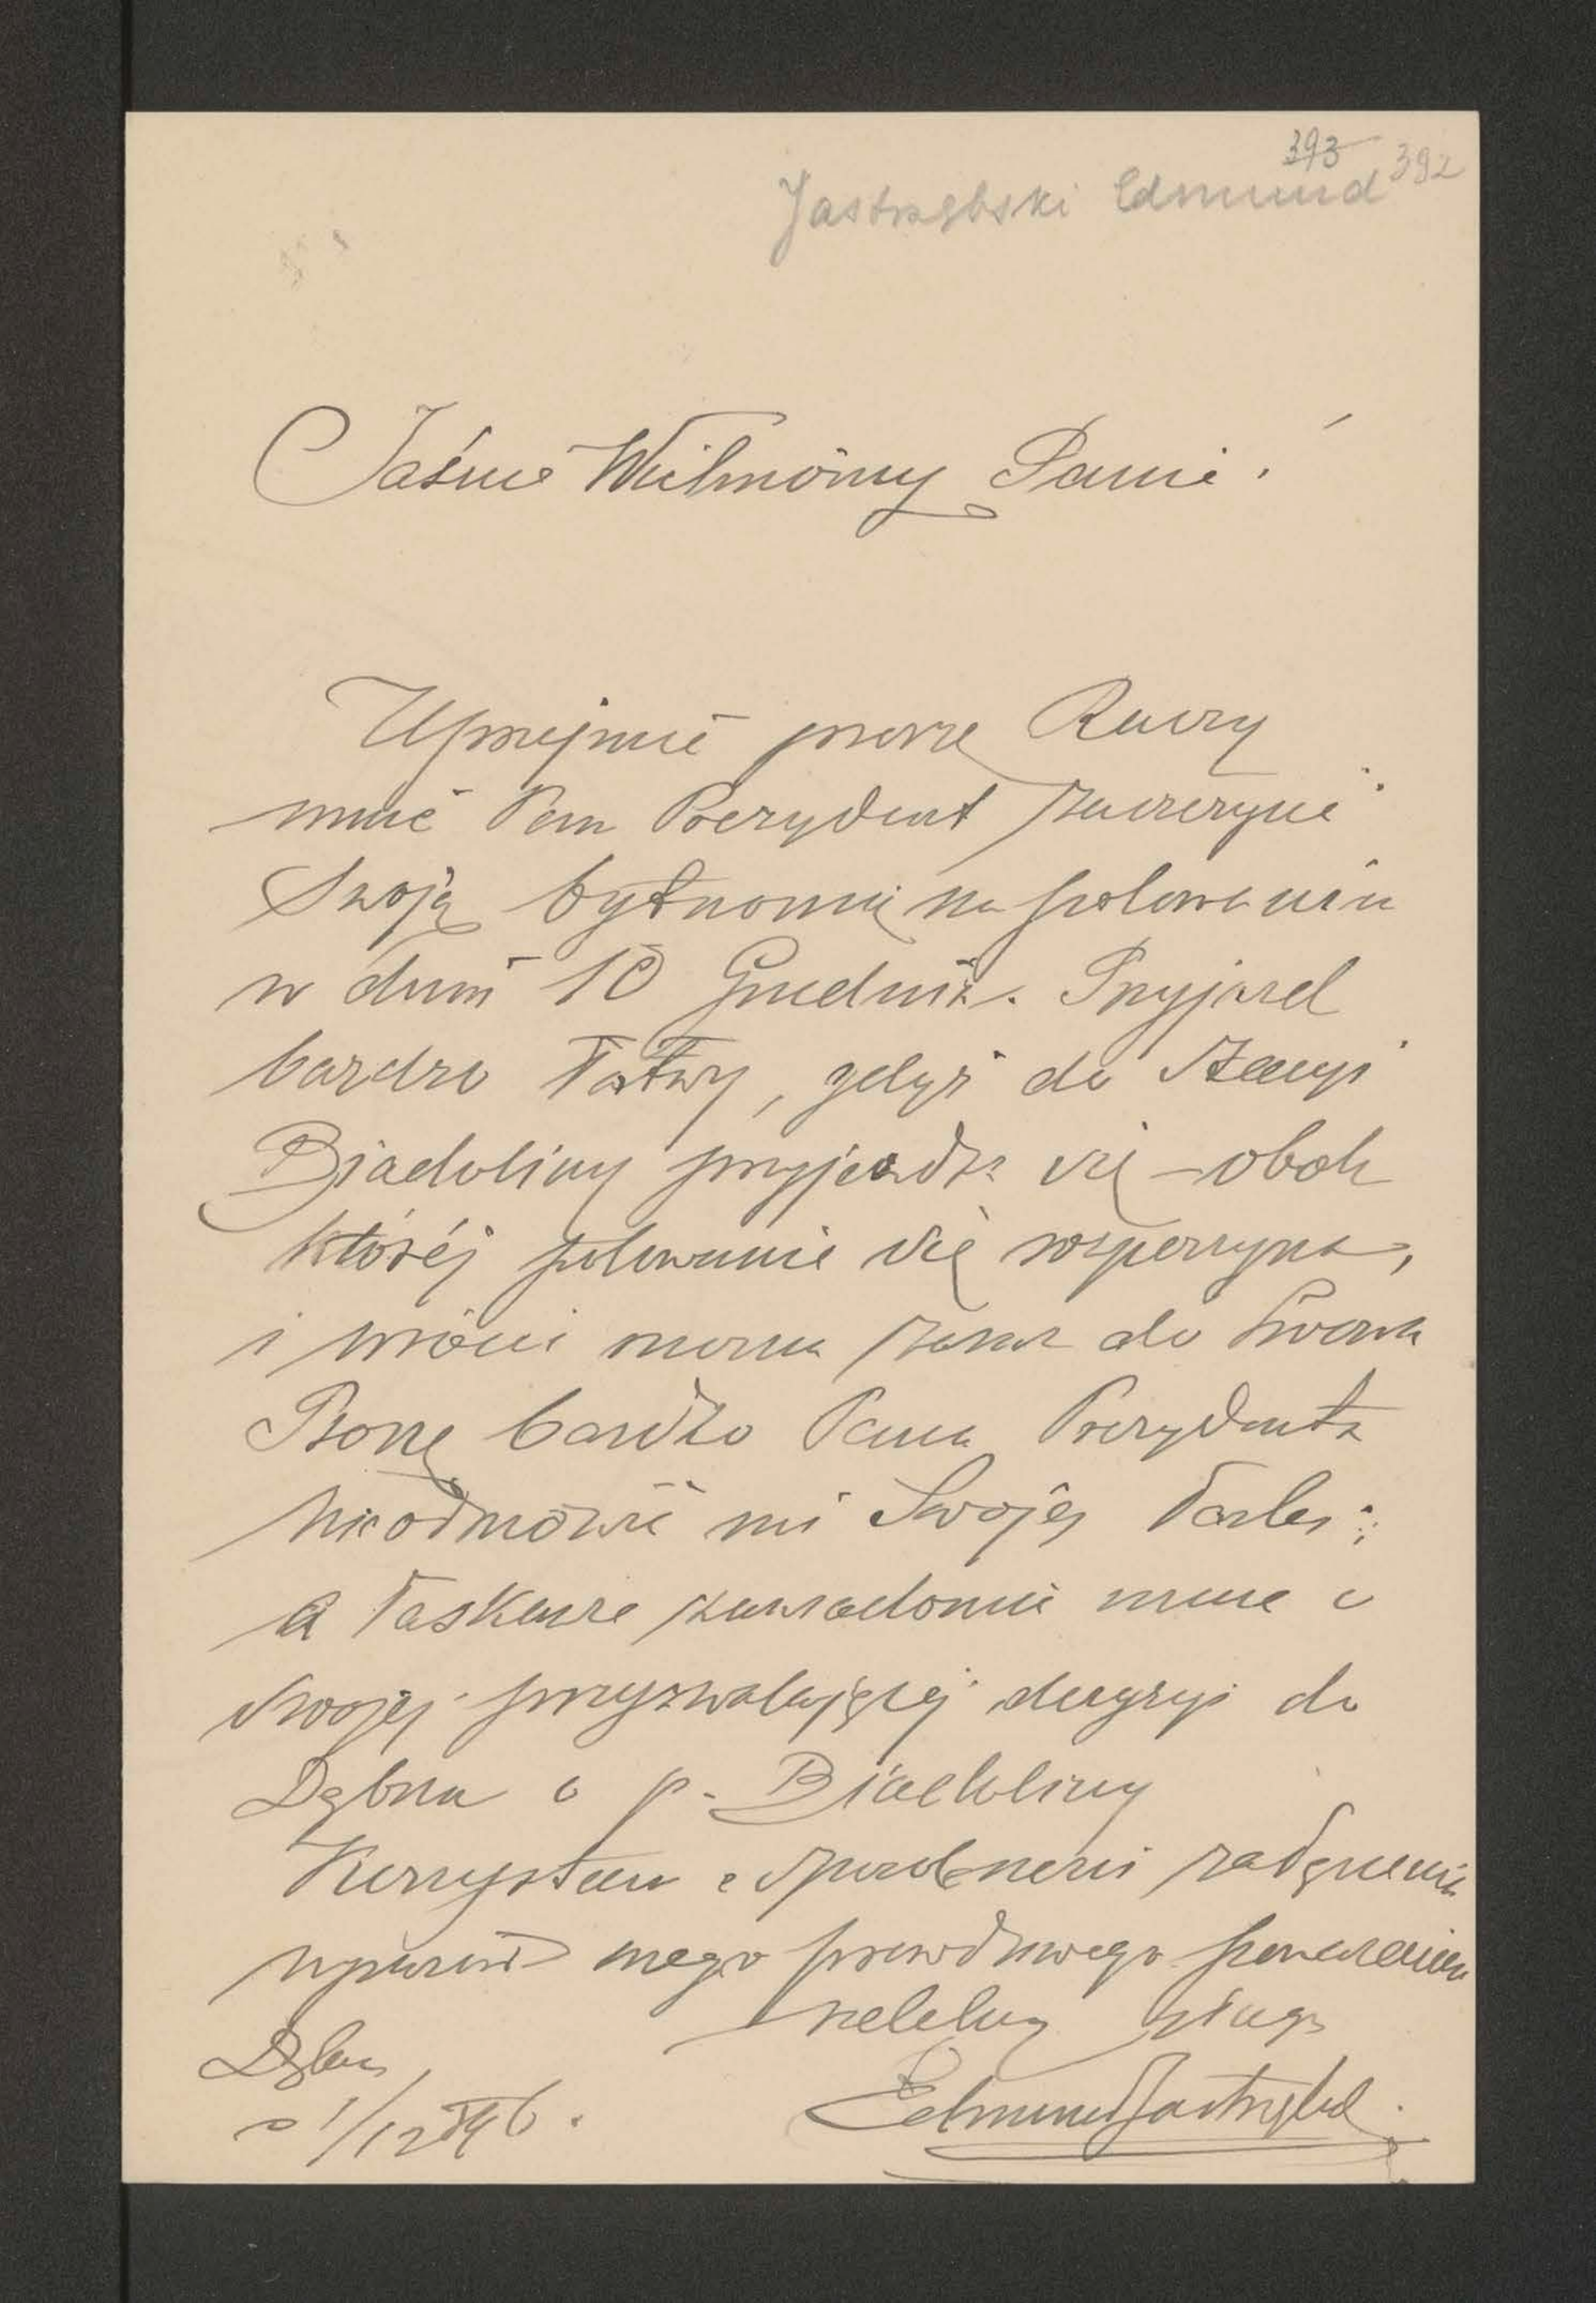 393 392
Jastrzębski Edmund
Jaśnie Wielmożny Panie!
Uprzejmie proszę Raczy
mnie Pan Prezydent zaszczycić
Swoją bytnością na polowaniu
w dniu 10 Grudnia. Przyjazd
bardzo łatwy, gdyż do Stacyi
Biadoliny przyjeżdża się – obok
której polowanie się rozpoczyna,
i wrócić można zaraz do
Proszę bardzo Pana Prezydenta
nieodmówić mi Swojej łaski;
a łaskawie zawiadomić mnie o
swojej przyzwalającej decyzyi do
Dębna o p. Biadoliny
Korzystam z sposobności załączenia
wyrazów mego prawdziwego poważania
sługa
Dębno
1/12 896.
Edmund Jastrzębski